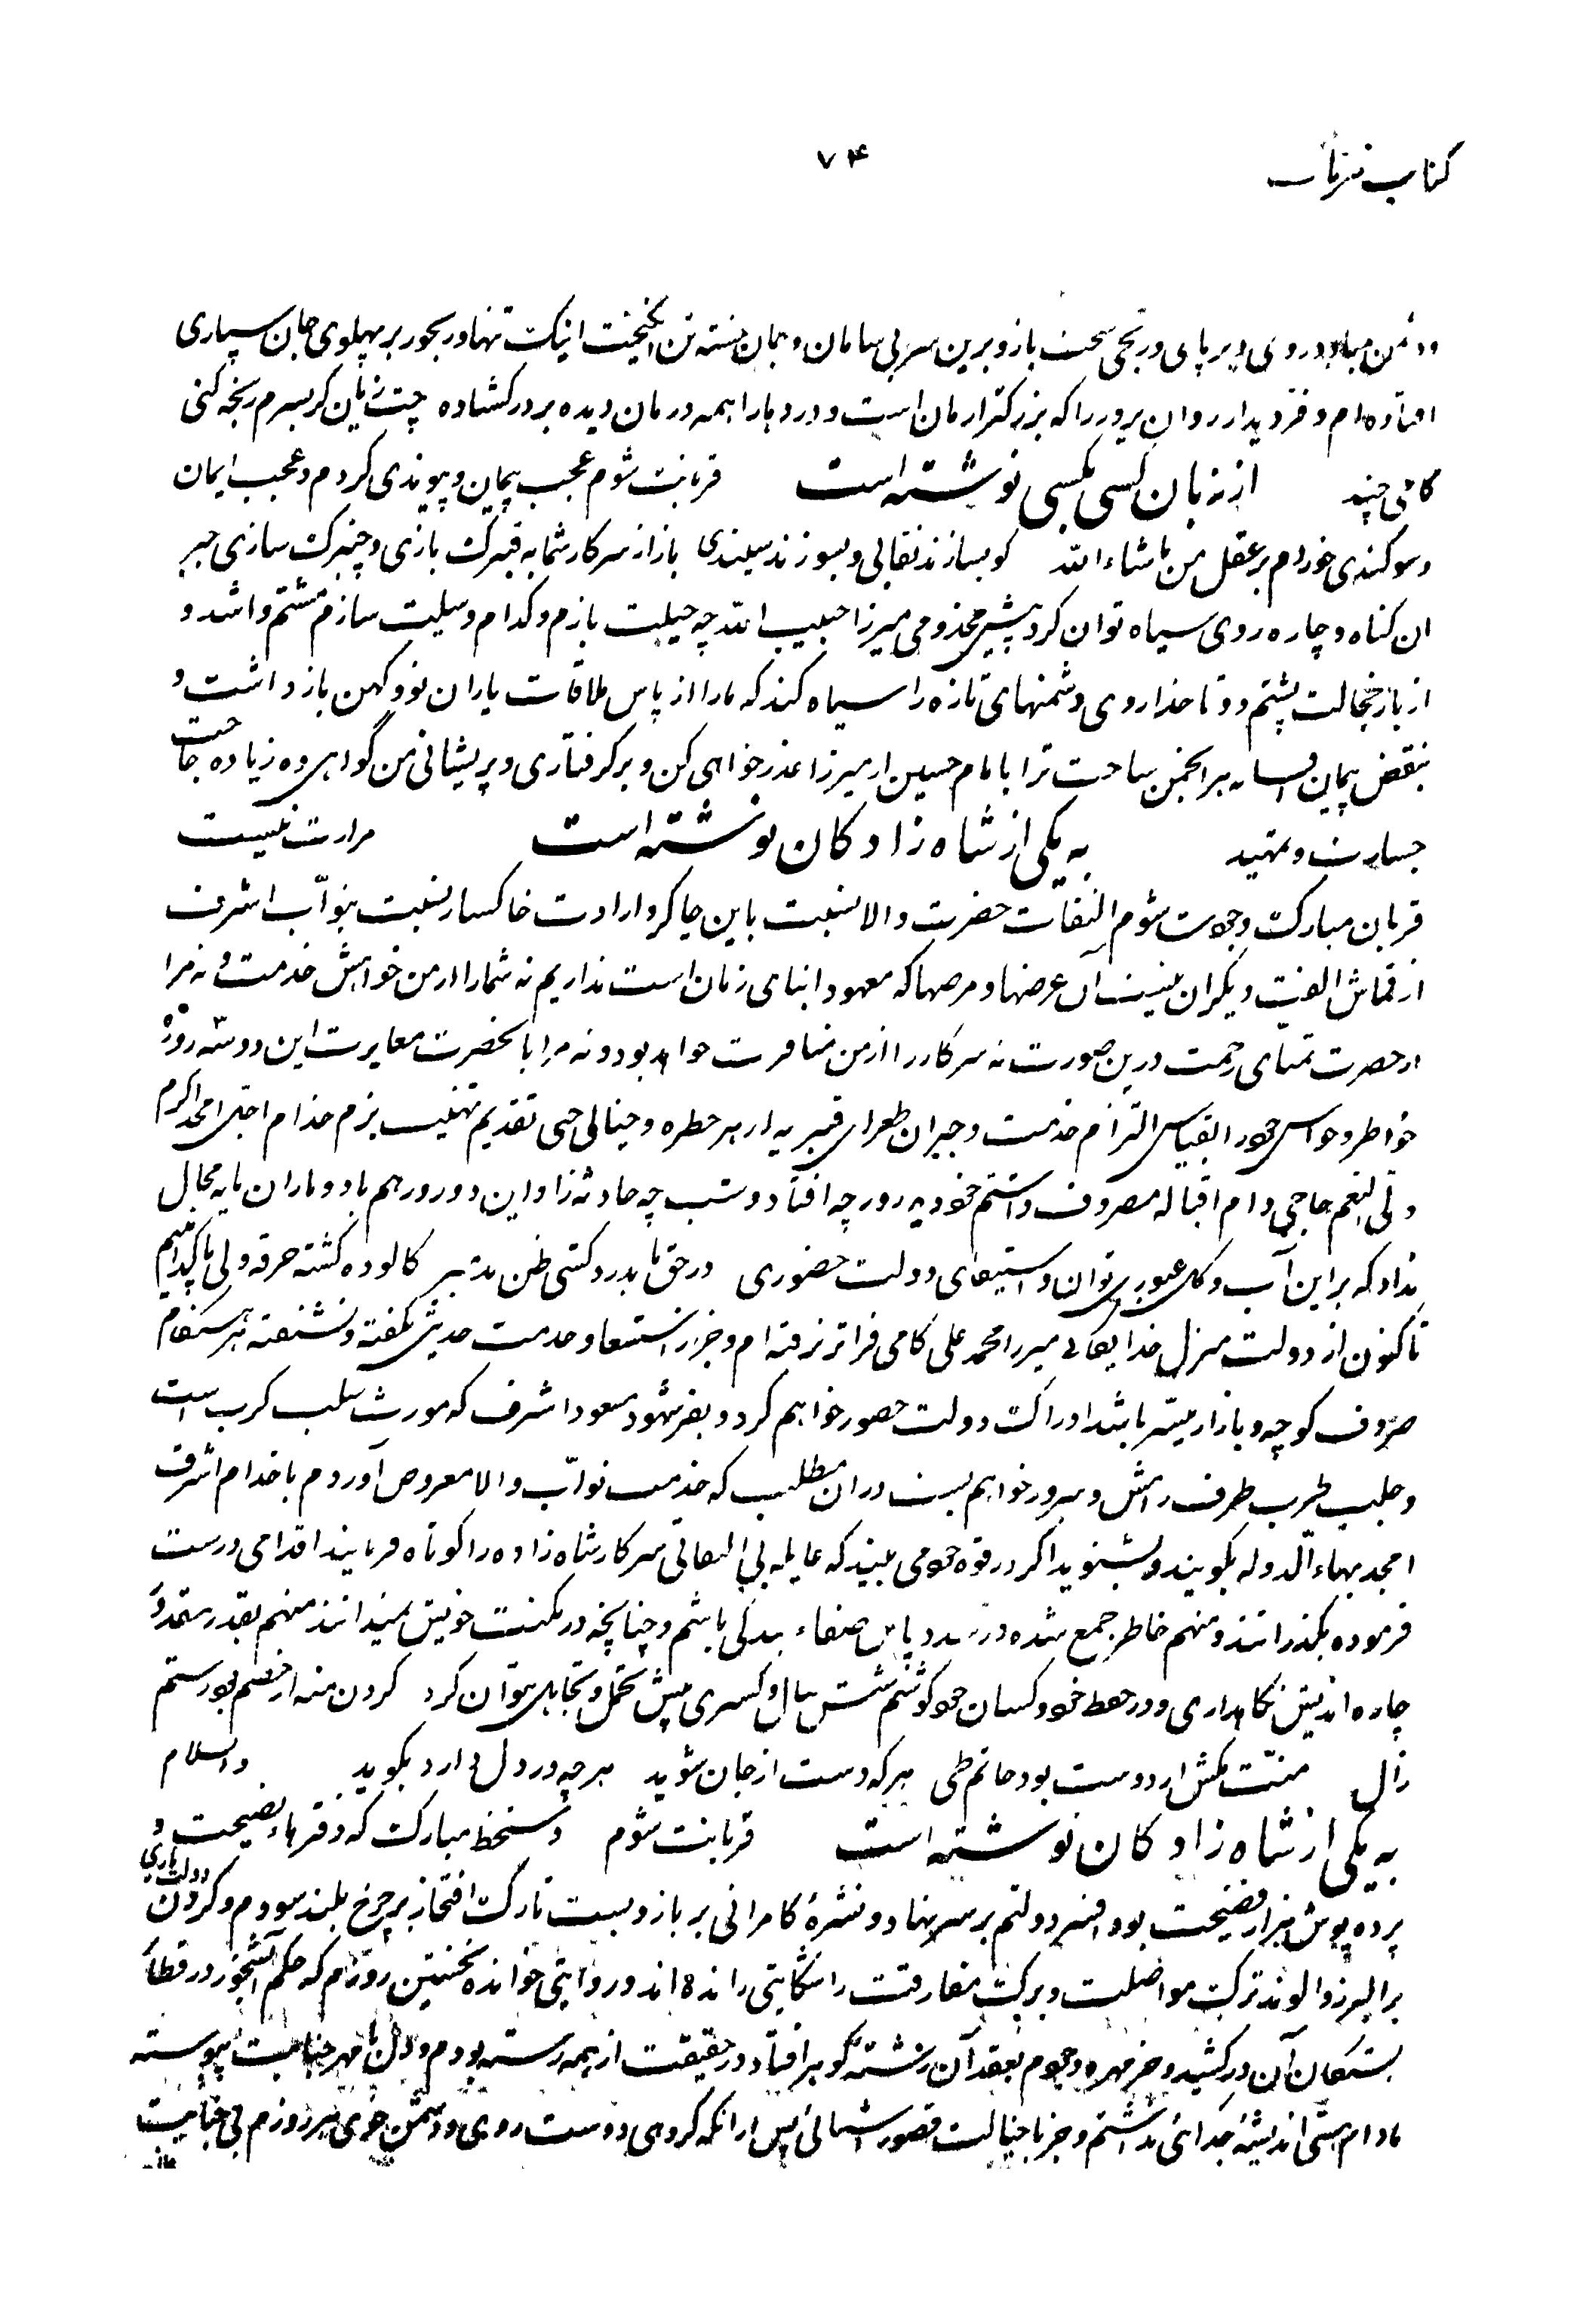 کتاب منشآت
۷۴
و دشمن مباد در روی دیر پای و رنجی سخت بازو برین سر بی سامان و بمان خسته تن انگیخت اینک تنها و رنجور بر پهلوی جان سپاری
افتاده‌ام و فر دیدار روان پرور را که بزرگتر ارمان است و درد ما را همه درمان دیده بر در گشاده چت زیان گر بسرم رنجه کنی
گامی چند از زبان کسی بکسی نوشته است قربانت شوم عجب پیمان و پیوندی کردم و عجب ایمان
و سوگندی خوردم بر عقل من ماشاءالله کو بسازند نقالی و بسوزند سپندی باز از سرکار شما به قنبرک بازی و چنبرک سازی جبر
ان گناه و چاره روی سیاه توان کرد پیش مخدومی میرزا حبیب الله چه حیلت بازم و کدام وسیلت سازم مشتم وا شد و
از بار خجالت پشتم دو تا خدا روی دشمنهای تازه را سیاه کند که ما را از پاس ملاقات یاران نو و کهن باز داشت و
بنقض پیمان افسانه هر انجمن ساخت ترا با امام حسین از میرزا عذر خواهی کن و بر گرفتاری و پریشانی من گواهی ده زیاده حاجت
جسارت و تمهید مرارت نیست به یکی از شاه زادکان نوشته است
قربان مبارک وجودت شوم التفات حضرت والا نسبت باین چاکر و ارادت خاکسار نسبت بنواب اشرف
از قماش الفت دیگران نیست آن عرضها و مرضها که معهود ابنای زمان است نداریم نه شما را از من خواهش خدمت و نه مرا
از حضرت تمنای رحمت درین صورت نه سرکار را از من منافرت خواهد بود و نه مرا با حضرت مغایرت این دو سه روزه
خواطر و حواس خود را بقیاس التزام خدمت و جبران طغرای قنبریه از هر خطره و خیالی حتی تقدیم تهنیت بزم خدام اجل امجد اکرم
ولی النعم حاجی دام اقباله مصروف داشتم خود به روز چه افتاد و شب چه حادثه زاد این دو روز هم باد و باران مایه مجال
نداد که بر این آب و گل عبوری توان و استیفای دولت حضوری در حق ما بدرد کشی ظن بد مبر کالوده گشته خرقه ولی پاکدامنیم
تاکنون از دولت منزل خدایگانی میرزا محمد علی گامی فراتر نرفته‌ام و جز از استسعاد خدمت حدیثی نگفته و نشنفته هر هنگام
صروف کوچه و بازار میسر باشد ادراک دولت حضور خواهم کرد و بفر شهود مسعود اشرف که مورث سلب کرب است
و جلب طرب طرف رامش و سرور خواهم بست در ان مطلب که خدمت نواب والا معروض آوردم با خدام اشرف
امجد بهاءالدوله بگویند و بشنوید اگر در قوه خود می بیند که عایله بی العالی سرکار شاه زاده را کوتاه فرمایند اقدامی درست
فرموده بگذرانند و منهم خاطر جمع شده در صدد پاس صفاء بندگی باشم و چنانچه در مکنت خویش نمیدانند منهم بقدر مقدور
چاره اندیش نگاهداری و در حفظ خود و کسان خود کوشم شش سال و کسری بیش تحمل و تجاهل نتوان کرد گردن منه ار خصم بود رستم
زال منت مکش ار دوست بود حاتم طی هر که دست از جان بشوید هر چه در دل دارد بگوید والسلام
به یکی از شاه زادکان نوشته است قربانت شوم دستخط مبارک که دفترها نصیحت و
پرده پوش هزار فضیحت بود افسر دولتم بر سر نهاد و نشرهٔ کامرانی بر بازو بست تارک افتخار بر چرخ بلند سودم و گردن دولت یاری
بر البرز و الوند ترک مواصلت و برک مفارقت را شکایتی رانده‌اند و روایتی خوانده نخستین روزم که حکم آبشخور در قطار
بستگان آن در کشید و خر مهره وجودم بعقد آن رشته گوهر افتاد در حقیقت از همه رسته بودم و دل با مهر جنابت پیوسته
مادام هستی اندیشهٔ جدائی نداشتم و جز با خیالت تصور اشنائی پس از آنکه گروهی دوست روی و دشمن خوی هر روزم بی جنایت